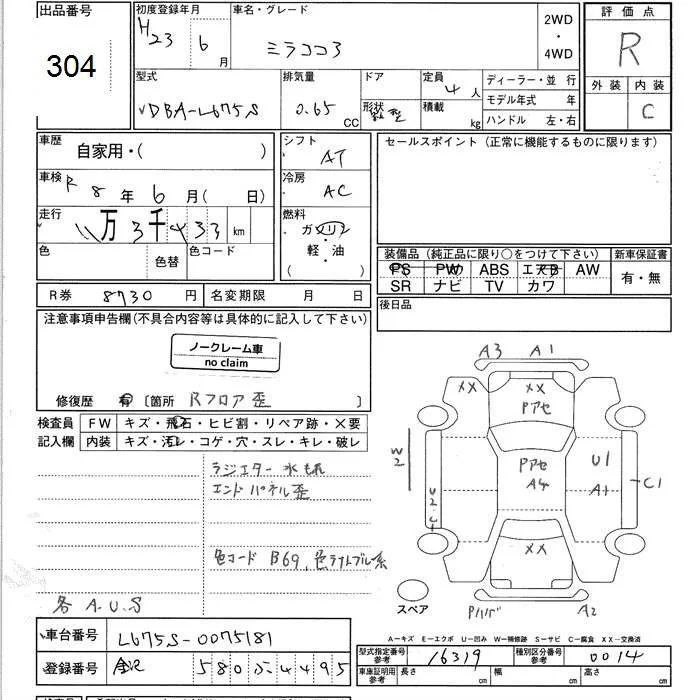 出品番号
304
初度登録年月
H23 6月
車名・グレード
ミラココア
2WD
・
4WD
評価点
R
外装 内装
C
型式
DBA-L675S
排気量
0.65 CC
ドア
形状
定員
4人
積載
kg
ディーラー・並 行
モデル年式 年
ハンドル 左・右
車歴
自家用・( )
シフト
AT
セールスポイント (正常に機能するものに限ります)
車検
R8年6月( 日)
冷房
AC
走行
11万3千433km
燃料
ガソリン
・
軽・油
( )
色
色替
色コード
装備品 (純正品に限り○をつけて下さい)
PS PW ABS エアB AW
SR ナビ TV カワ
新車保証書
有・無
R券 8730円
名変期限 月 日
後日品
注意事項申告欄(不具合内容等は具体的に記入して下さい)
ノークレーム車
no claim
修復歴 有 〔箇所 Rフロア歪
検査員
記入欄
FW キズ・飛石・ヒビ割・リペア跡・×要
内装 キズ・汚レ・コゲ・穴・スレ・キレ・破レ
ラジエター水もれ
エンドパネル歪
色コード B69,色ライトブルー系
各 A.U.S
A3 A1
XX XX
Pアセ
W2
Pアセ
A4
U1
A1
C1
U2.C
XX
スペア
A2
A－キズ E－エクボ U－凹み W－補修跡 S－サビ C－腐食 XX－交換済
車台番号
L675S-0075181
型式指定番号
参考
16319
種別区分番号
参考
0014
登録番号
580ぶ4495
車庫証明用
参考
長さ cm 幅 cm 高さ cm